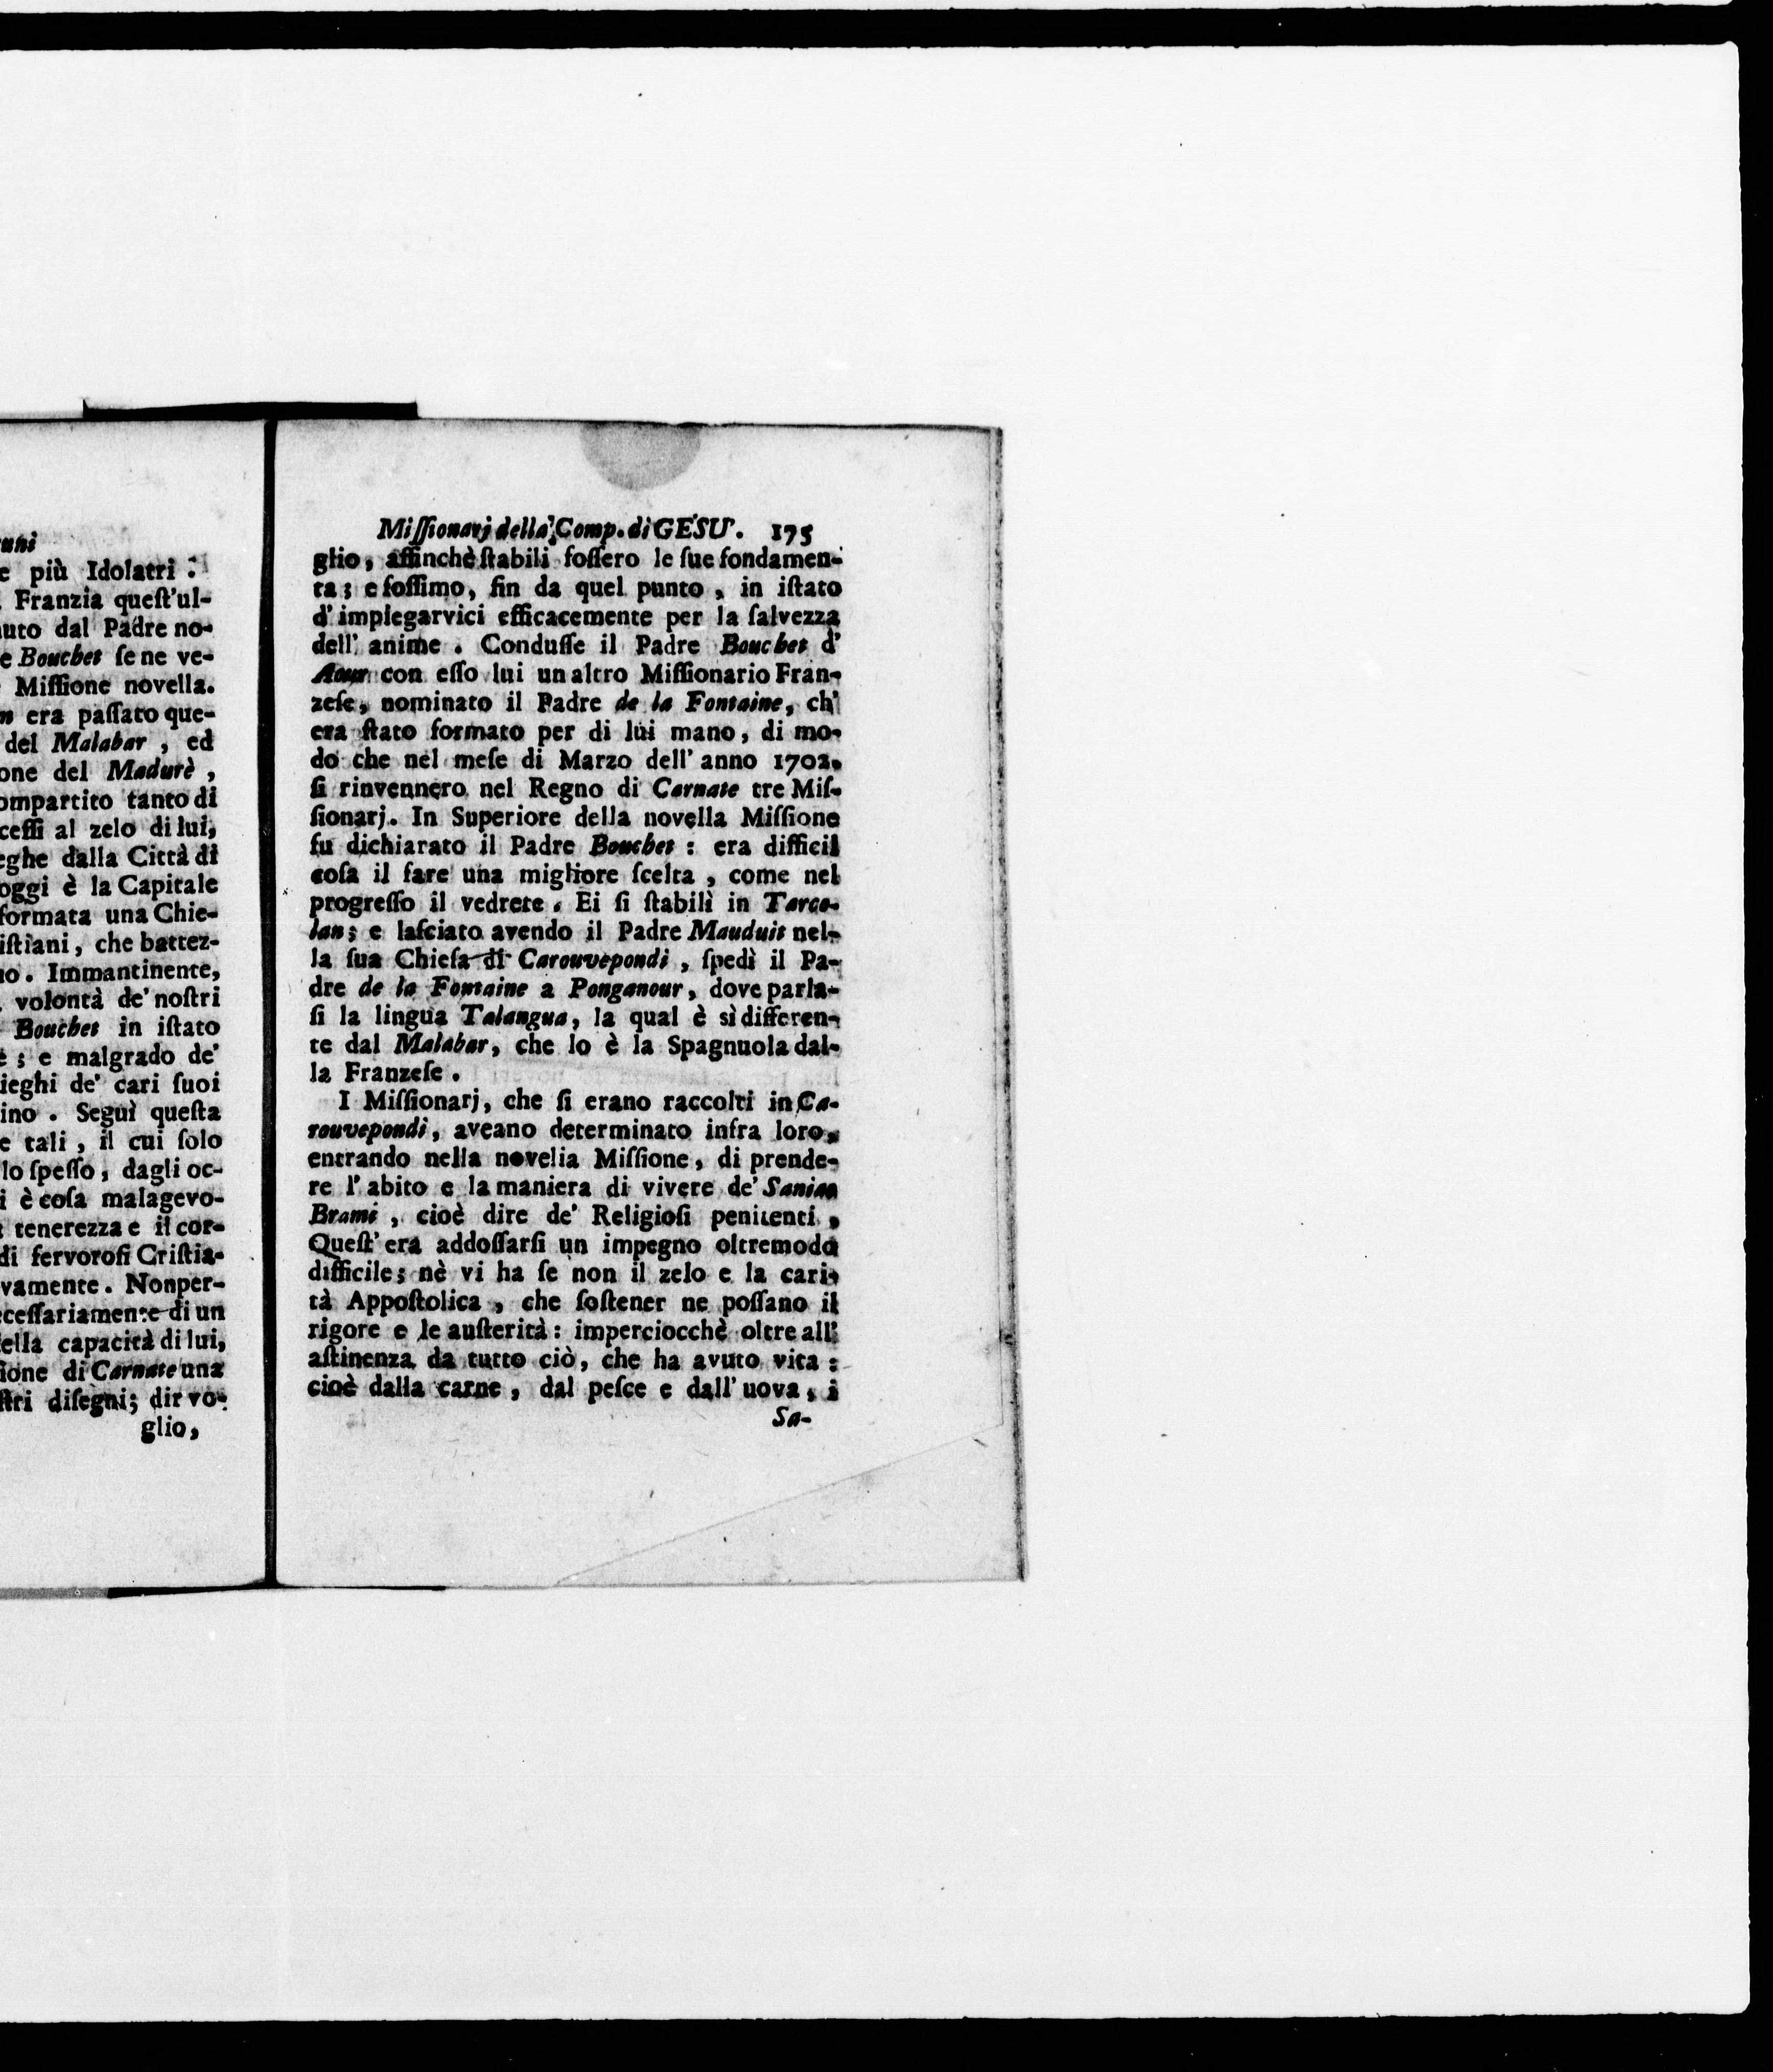 uni
e più Idolatri :
Franzia queſt'ul-
uto dal Padre no-
e Bouchet ſe ne ve-
Miſſione novella.
n era paſſato que-
del Malabar , ed
one del Madurè ,
ompartito tanto di
ceſſi al zelo di lui,
eghe dalla Città di
oggi è la Capitale
formata una Chie-
iſtiani, che battez-
no. Immantinente,
volontà de' noſtri
Bouchet in iſtato
e ; e malgrado de'
ieghi de' cari ſuoi
ino . Seguì queſta
e tali , il cui ſolo
lo ſpeſſo, dagli oc-
i è coſa malagevo-
tenerezza e il cor-
di fervoroſi Criſtia-
vamente. Nonper-
eceſſariamente di un
ella capacità di lui,
ſione di Carnate una
ſtri diſegni; dir vo-
glio,
Miſſionarj della Comp. di GESU'. 175
glio, affinchè ſtabili foſſero le ſue fondamen-
ta; e foſſimo, fin da quel punto , in iſtato
d'impiegarvici efficacemente per la ſalvezza
dell' anime . Conduſſe il Padre Bouchet d'
Aour con eſſo lui un altro Miſſionario Fran-
zeſe, nominato il Padre de la Fontaine, ch'
era ſtato formato per di lui mano, di mo-
do che nel meſe di Marzo dell' anno 1702.
ſi rinvennero nel Regno di Carnate tre Miſ-
ſionarj. In Superiore della novella Miſſione
fu dichiarato il Padre Bouchet : era difficil
coſa il fare una migliore ſcelta , come nel
progreſſo il vedrete . Ei ſi ſtabilì in Tarco-
lan; e laſciato avendo il Padre Mauduit nel-
la ſua Chieſa di Carouvepondi , ſpedì il Pa-
dre de la Fontaine a Ponganour, dove parla-
ſi la lingua Talangua, la qual è sì differen-
te dal Malabar, che lo è la Spagnuola dal-
la Franzeſe .
I Miſſionarj, che ſi erano raccolti in Ca-
rouvepondi, aveano determinato infra loro,
entrando nella novella Miſſione, di prende-
re l' abito e la maniera di vivere de' Sanias
Brami , cioè dire de' Religioſi penitenti .
Queſt' era addoſſarſi un impegno oltremodo
difficile; nè vi ha ſe non il zelo e la cari-
tà Appoſtolica , che ſoſtener ne poſſano il
rigore e le auſterità: imperciocchè oltre all'
aſtinenza da tutto ciò, che ha avuto vita :
cioè dalla carne , dal peſce e dall' uova, i
Sa-